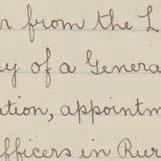 r from the L
y of a Genera
ation, appointm
fficers in Rur